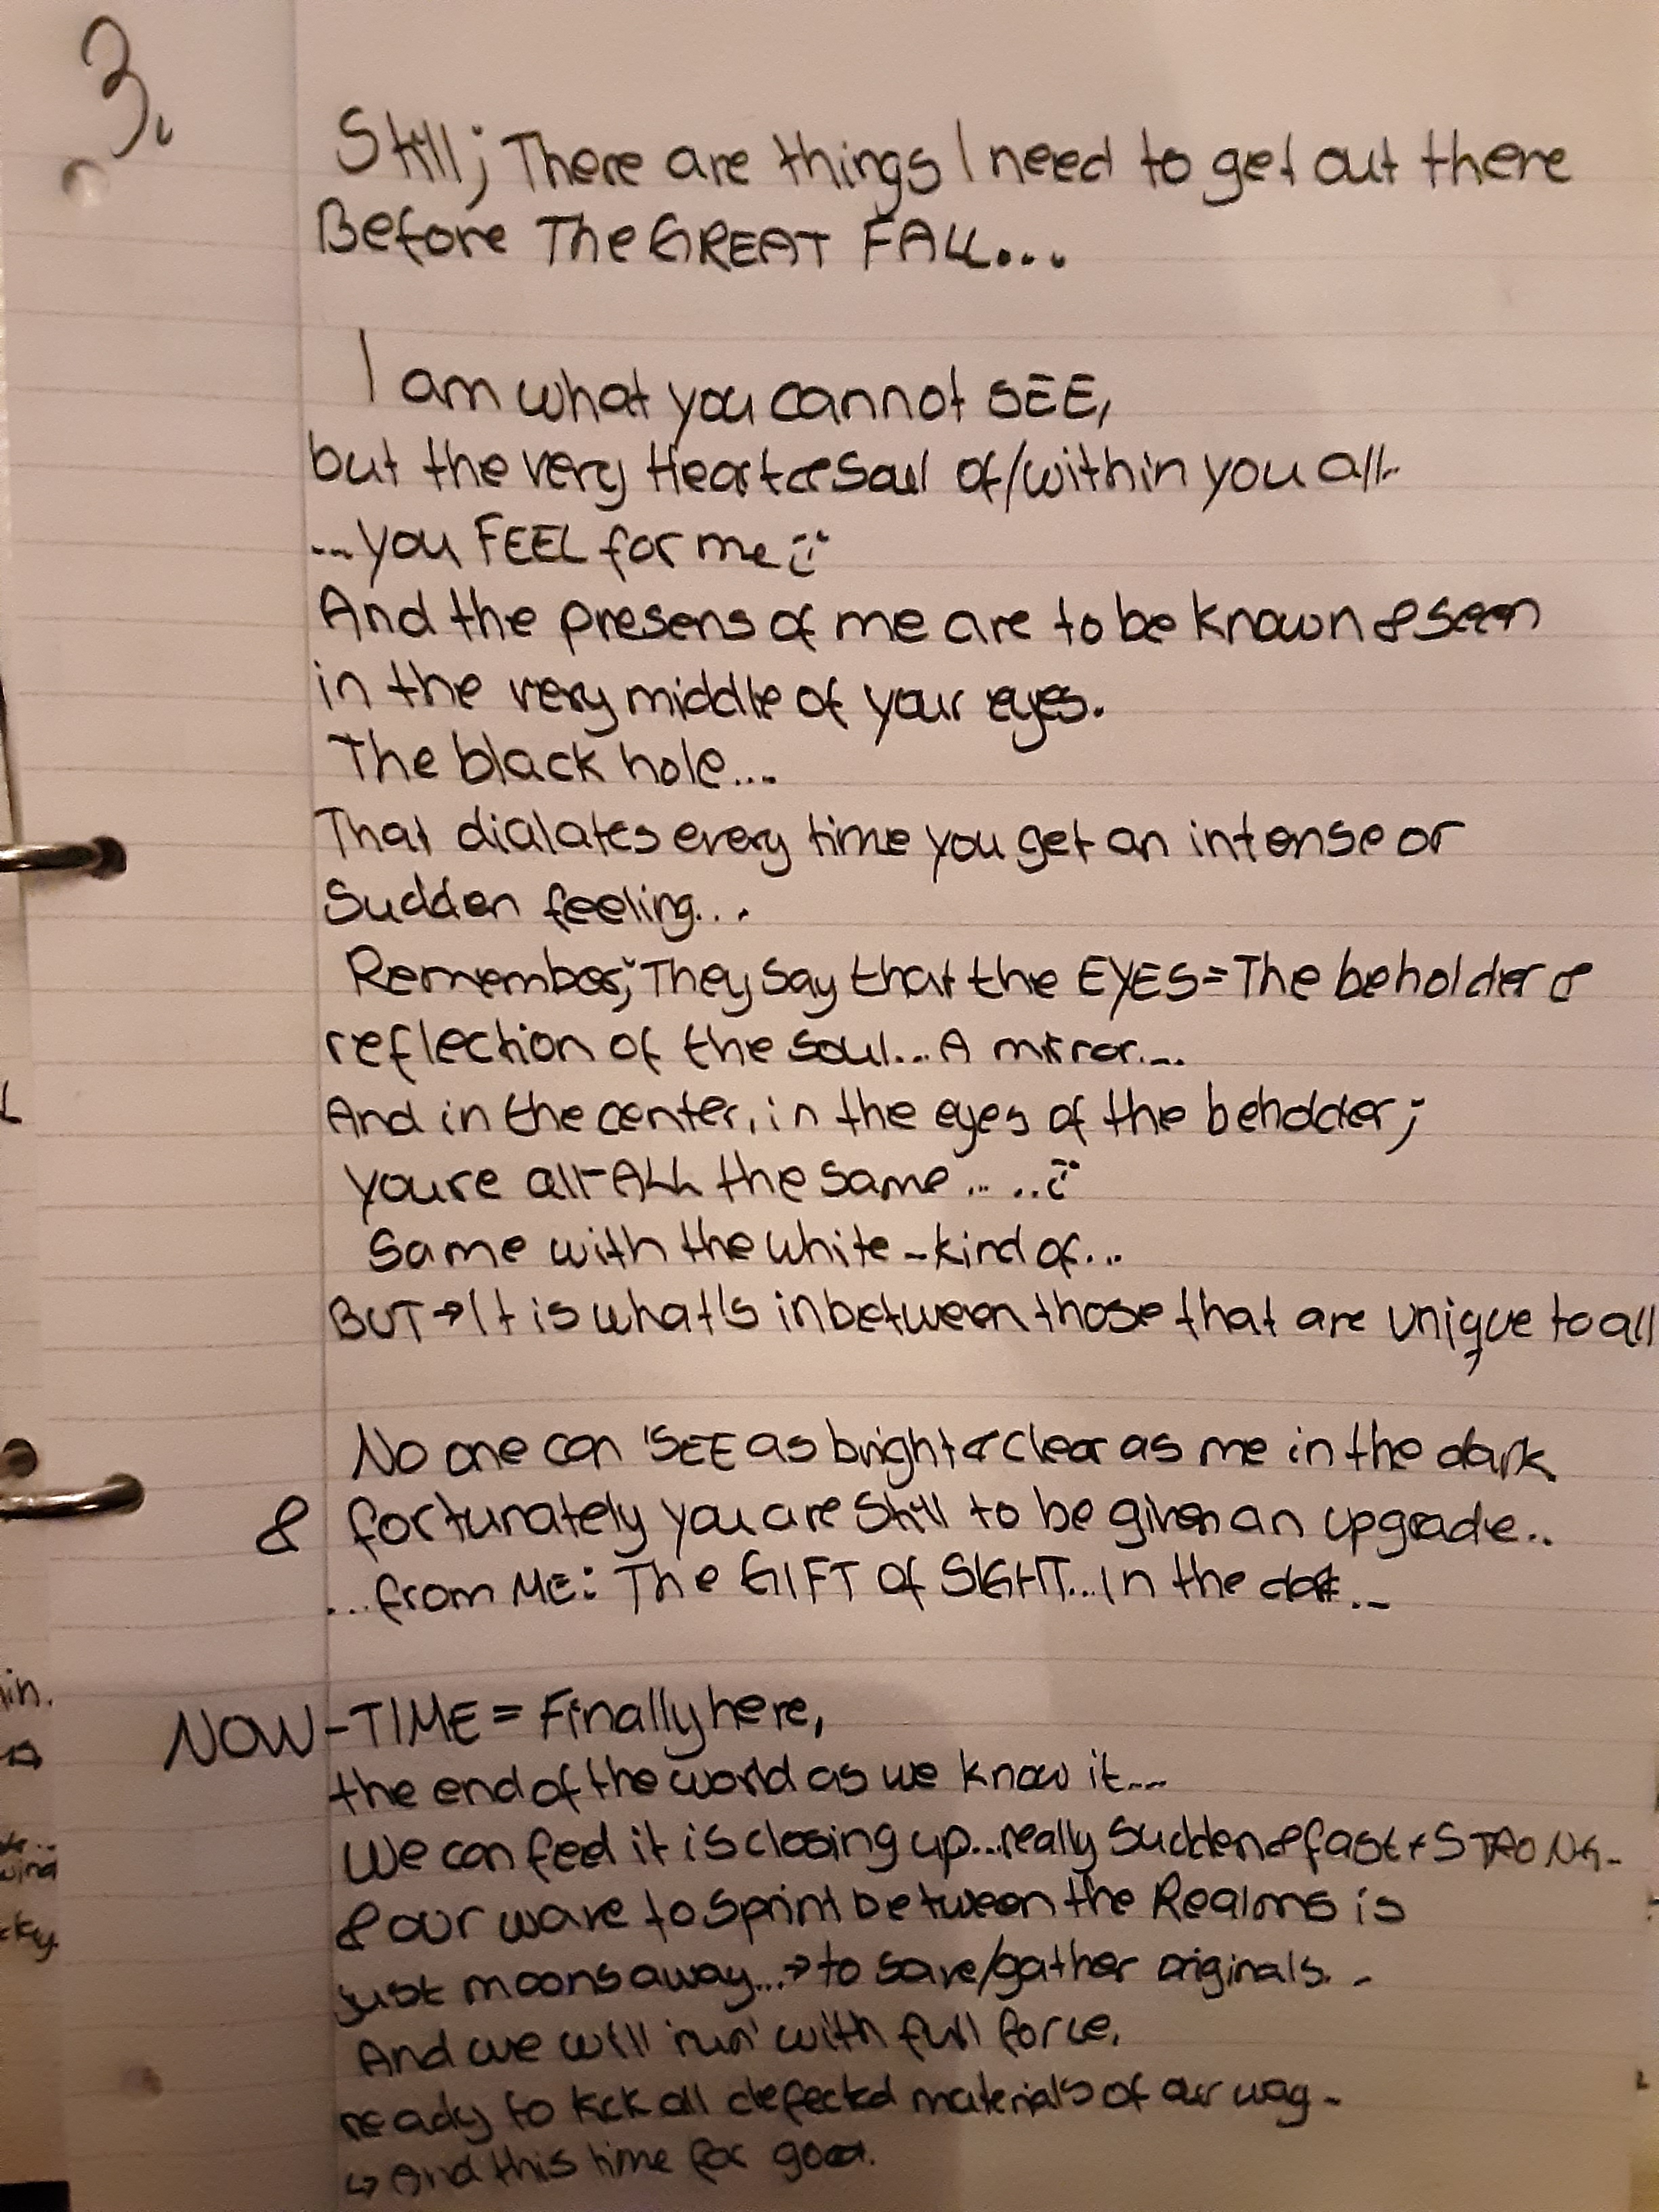 3.
Still; There are things I need to get out there
Before The GREAT FALL...
I am what you cannot SEE,
but the very Heart & Soul of/within you all.
...you FEEL for me :)
And the presens of me are to be known & seen
in the very middle of your eyes.
The black hole....
That dialates every time you get an intense or
Sudden feeling...
Remember; They say that the EYES = The beholder &
reflection of the soul... A mirror....
And in the center, in the eyes of the beholder;
youre all-ALL the same.....:)
Same with the white - kind of...
BUT → It is what's inbetween those that are unique to all
No one can 'SEE as bright & clear as me in the dark
& fortunately you are still to be given an upgrade..
...from ME: The GIFT of SIGHT...in the dark...
NOW-TIME = Finally here,
the end of the world as we know it...
We can feel it is closing up...really sudden & fast + STRONG-
& our wave to sprint between the Realms is
just moons away...→ to save/gather originals. -
And we will 'run' with full force,
ready to kick all defected materials of our way -
↳ And this time for good.
in.
wind
cky.